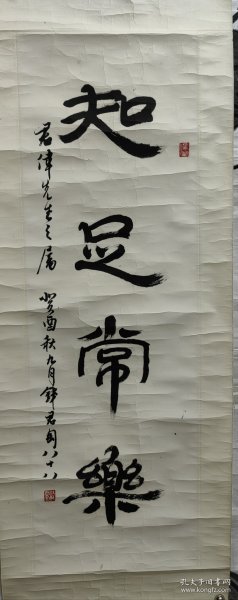 知足常樂
君偉先生之屬
癸酉秋九月錚君時八十八
孔夫子旧书网